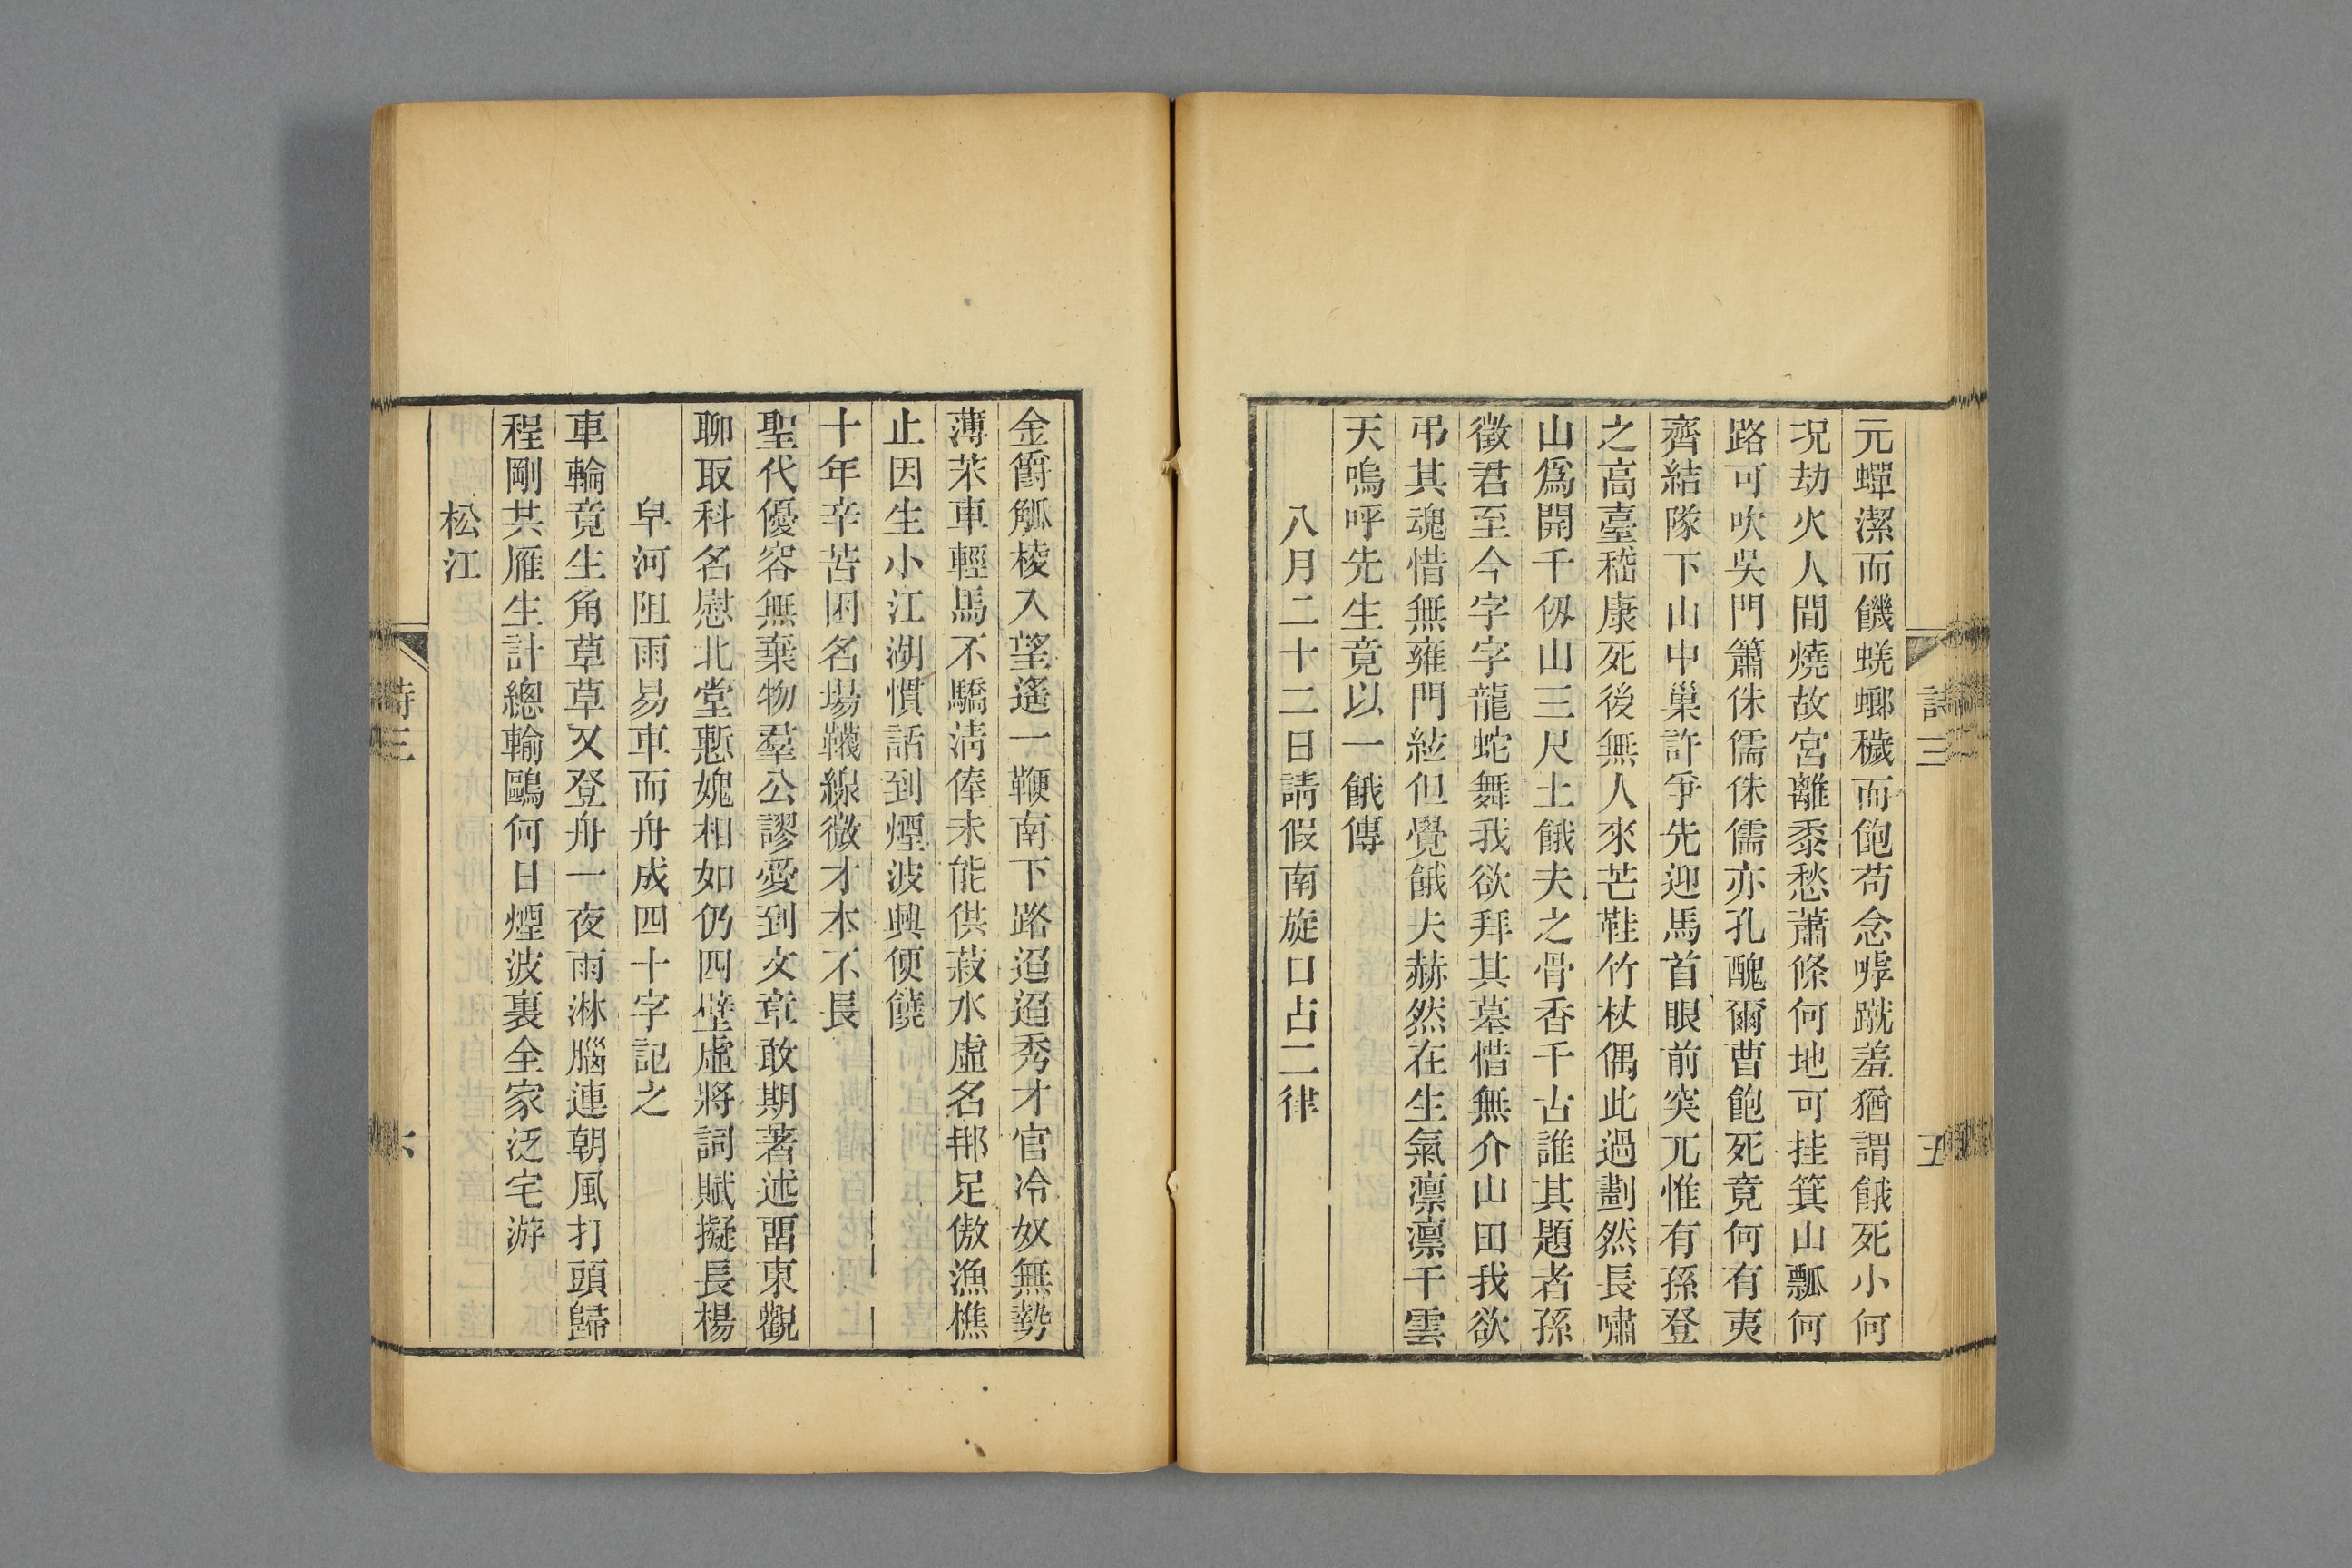 詩三
五
元蟬潔而饑蜣螂穢而飽苟念嘑蹴羞猶謂餓死小何
况劫火人間燒故宮離黍愁蕭條何地可挂箕山瓢何
路可吹吳門簫侏儒侏儒亦孔醜爾曹飽死竟何有夷
齊結隊下山中巢許爭先迎馬首眼前突兀惟有孫登
之高臺嵇康死後無人來芒鞋竹杖偶此過劃然長嘯
山爲開千仞山三尺土餓夫之骨香千古誰其題者孫
徵君至今字字龍蛇舞我欲拜其墓惜無介山田我欲
弔其魂惜無雍門絃但覺餓夫赫然在生氣凛凛干雲
天嗚呼先生竟以一餓傳
八月二十二日請假南旋口占二律
金爵觚棱入望遙一鞭南下路迢迢秀才官冷奴無勢
薄苯車輕馬不驕淸俸未能供菽水虛名那足傲漁樵
止因生小江湖慣話到煙波興便饒
十年辛苦困名場韈線微才本不長
聖代優容無棄物羣公謬愛到文章敢期著述畱東觀
聊取科名慰北堂慙媿相如仍四壁虛將詞賦擬長楊
皁河阻雨易車而舟成四十字記之
車輪竟生角草草又登舟一夜雨淋腦連朝風打頭歸
程剛共雁生計總輸鷗何日煙波裏全家泛宅游
松江
詩三
六